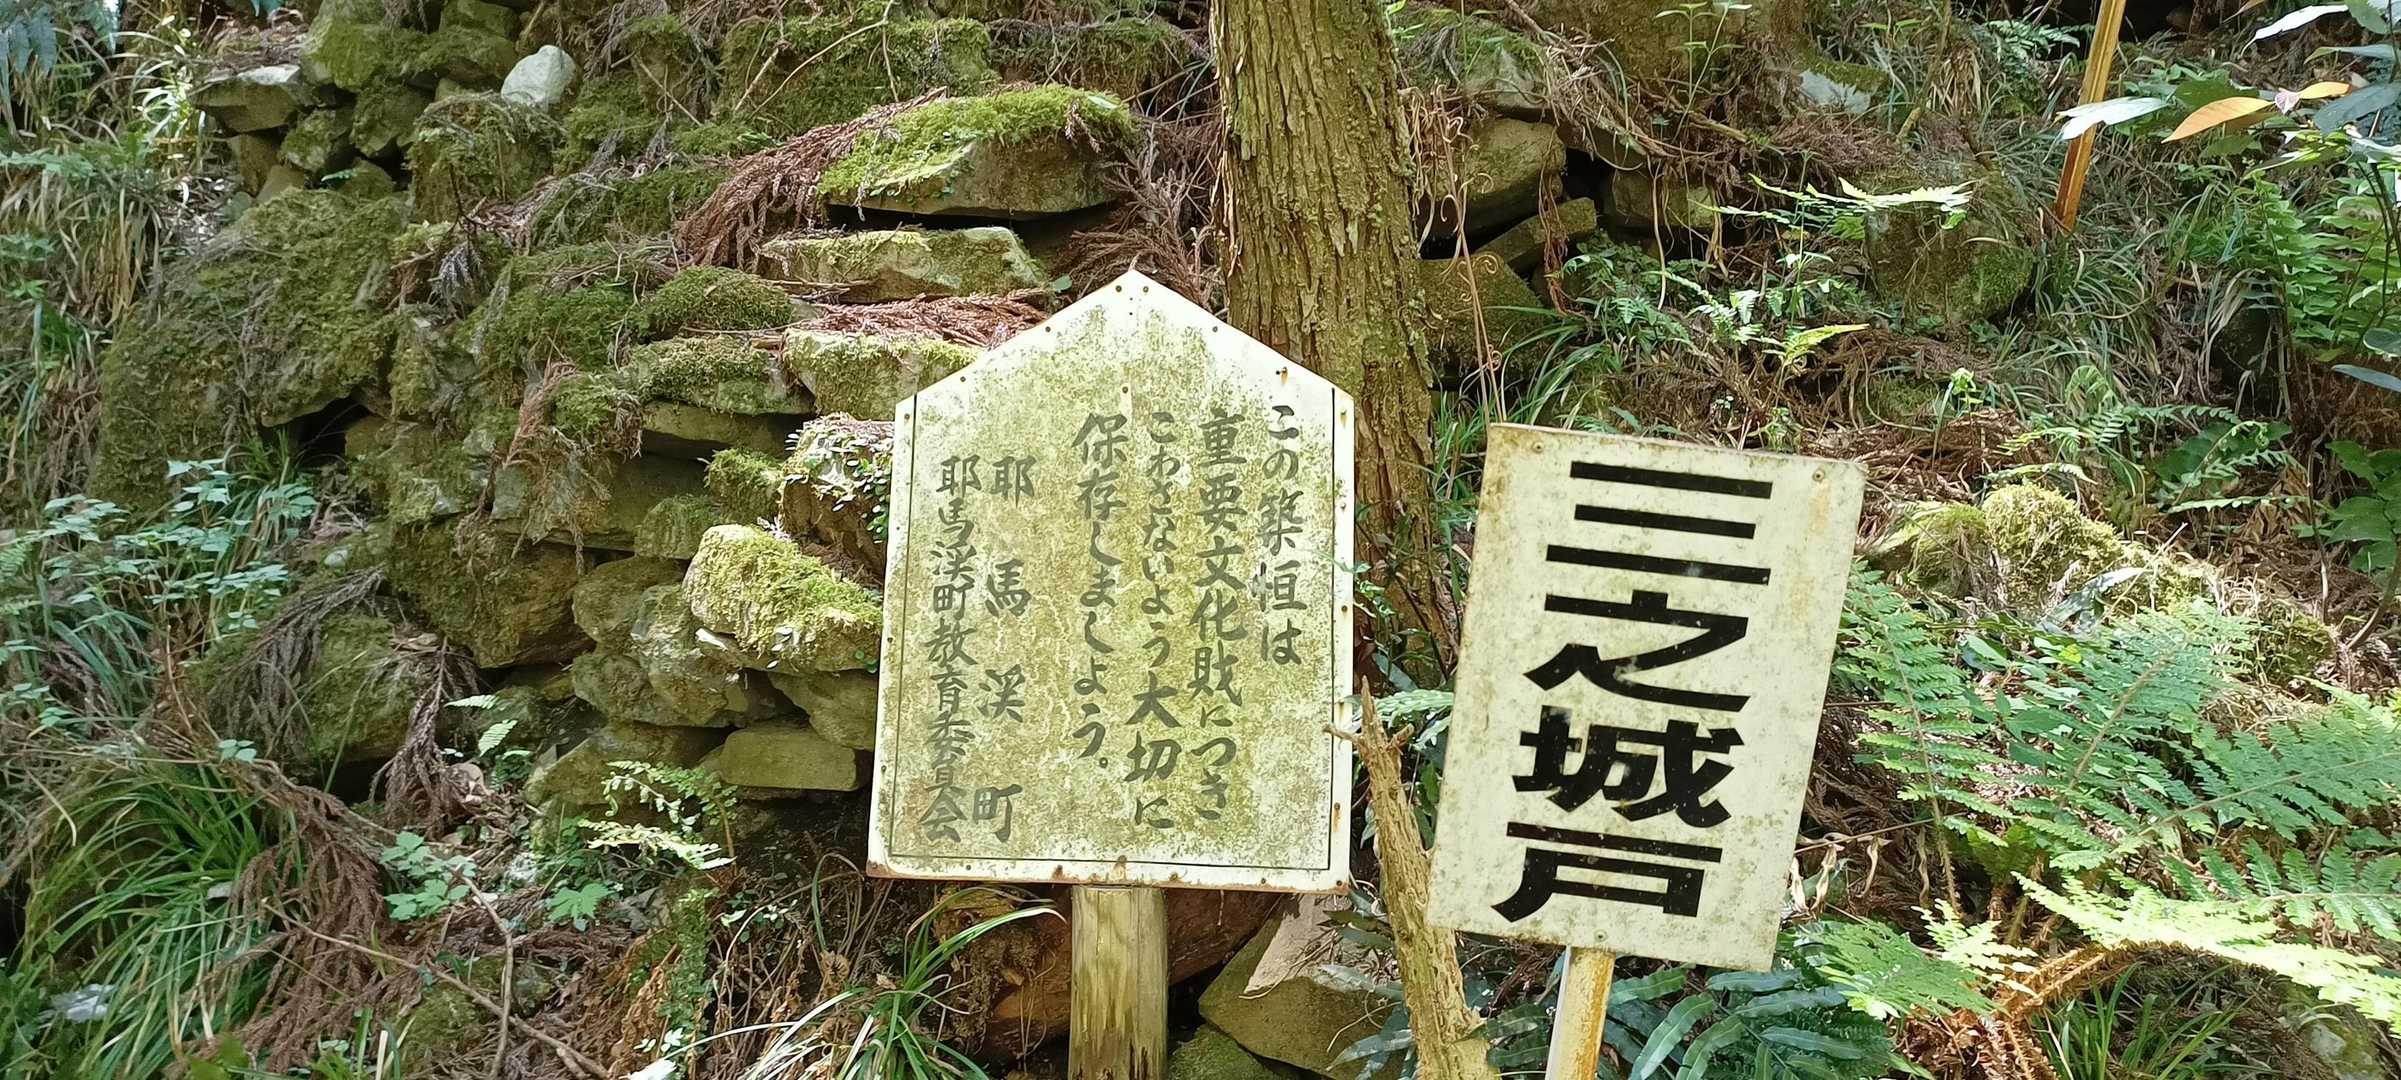 この築恒は
重要文化財につき
こわさないよう大切に
保存しましょう。
耶馬渓町
耶馬渓町教育委員会
三之城戸